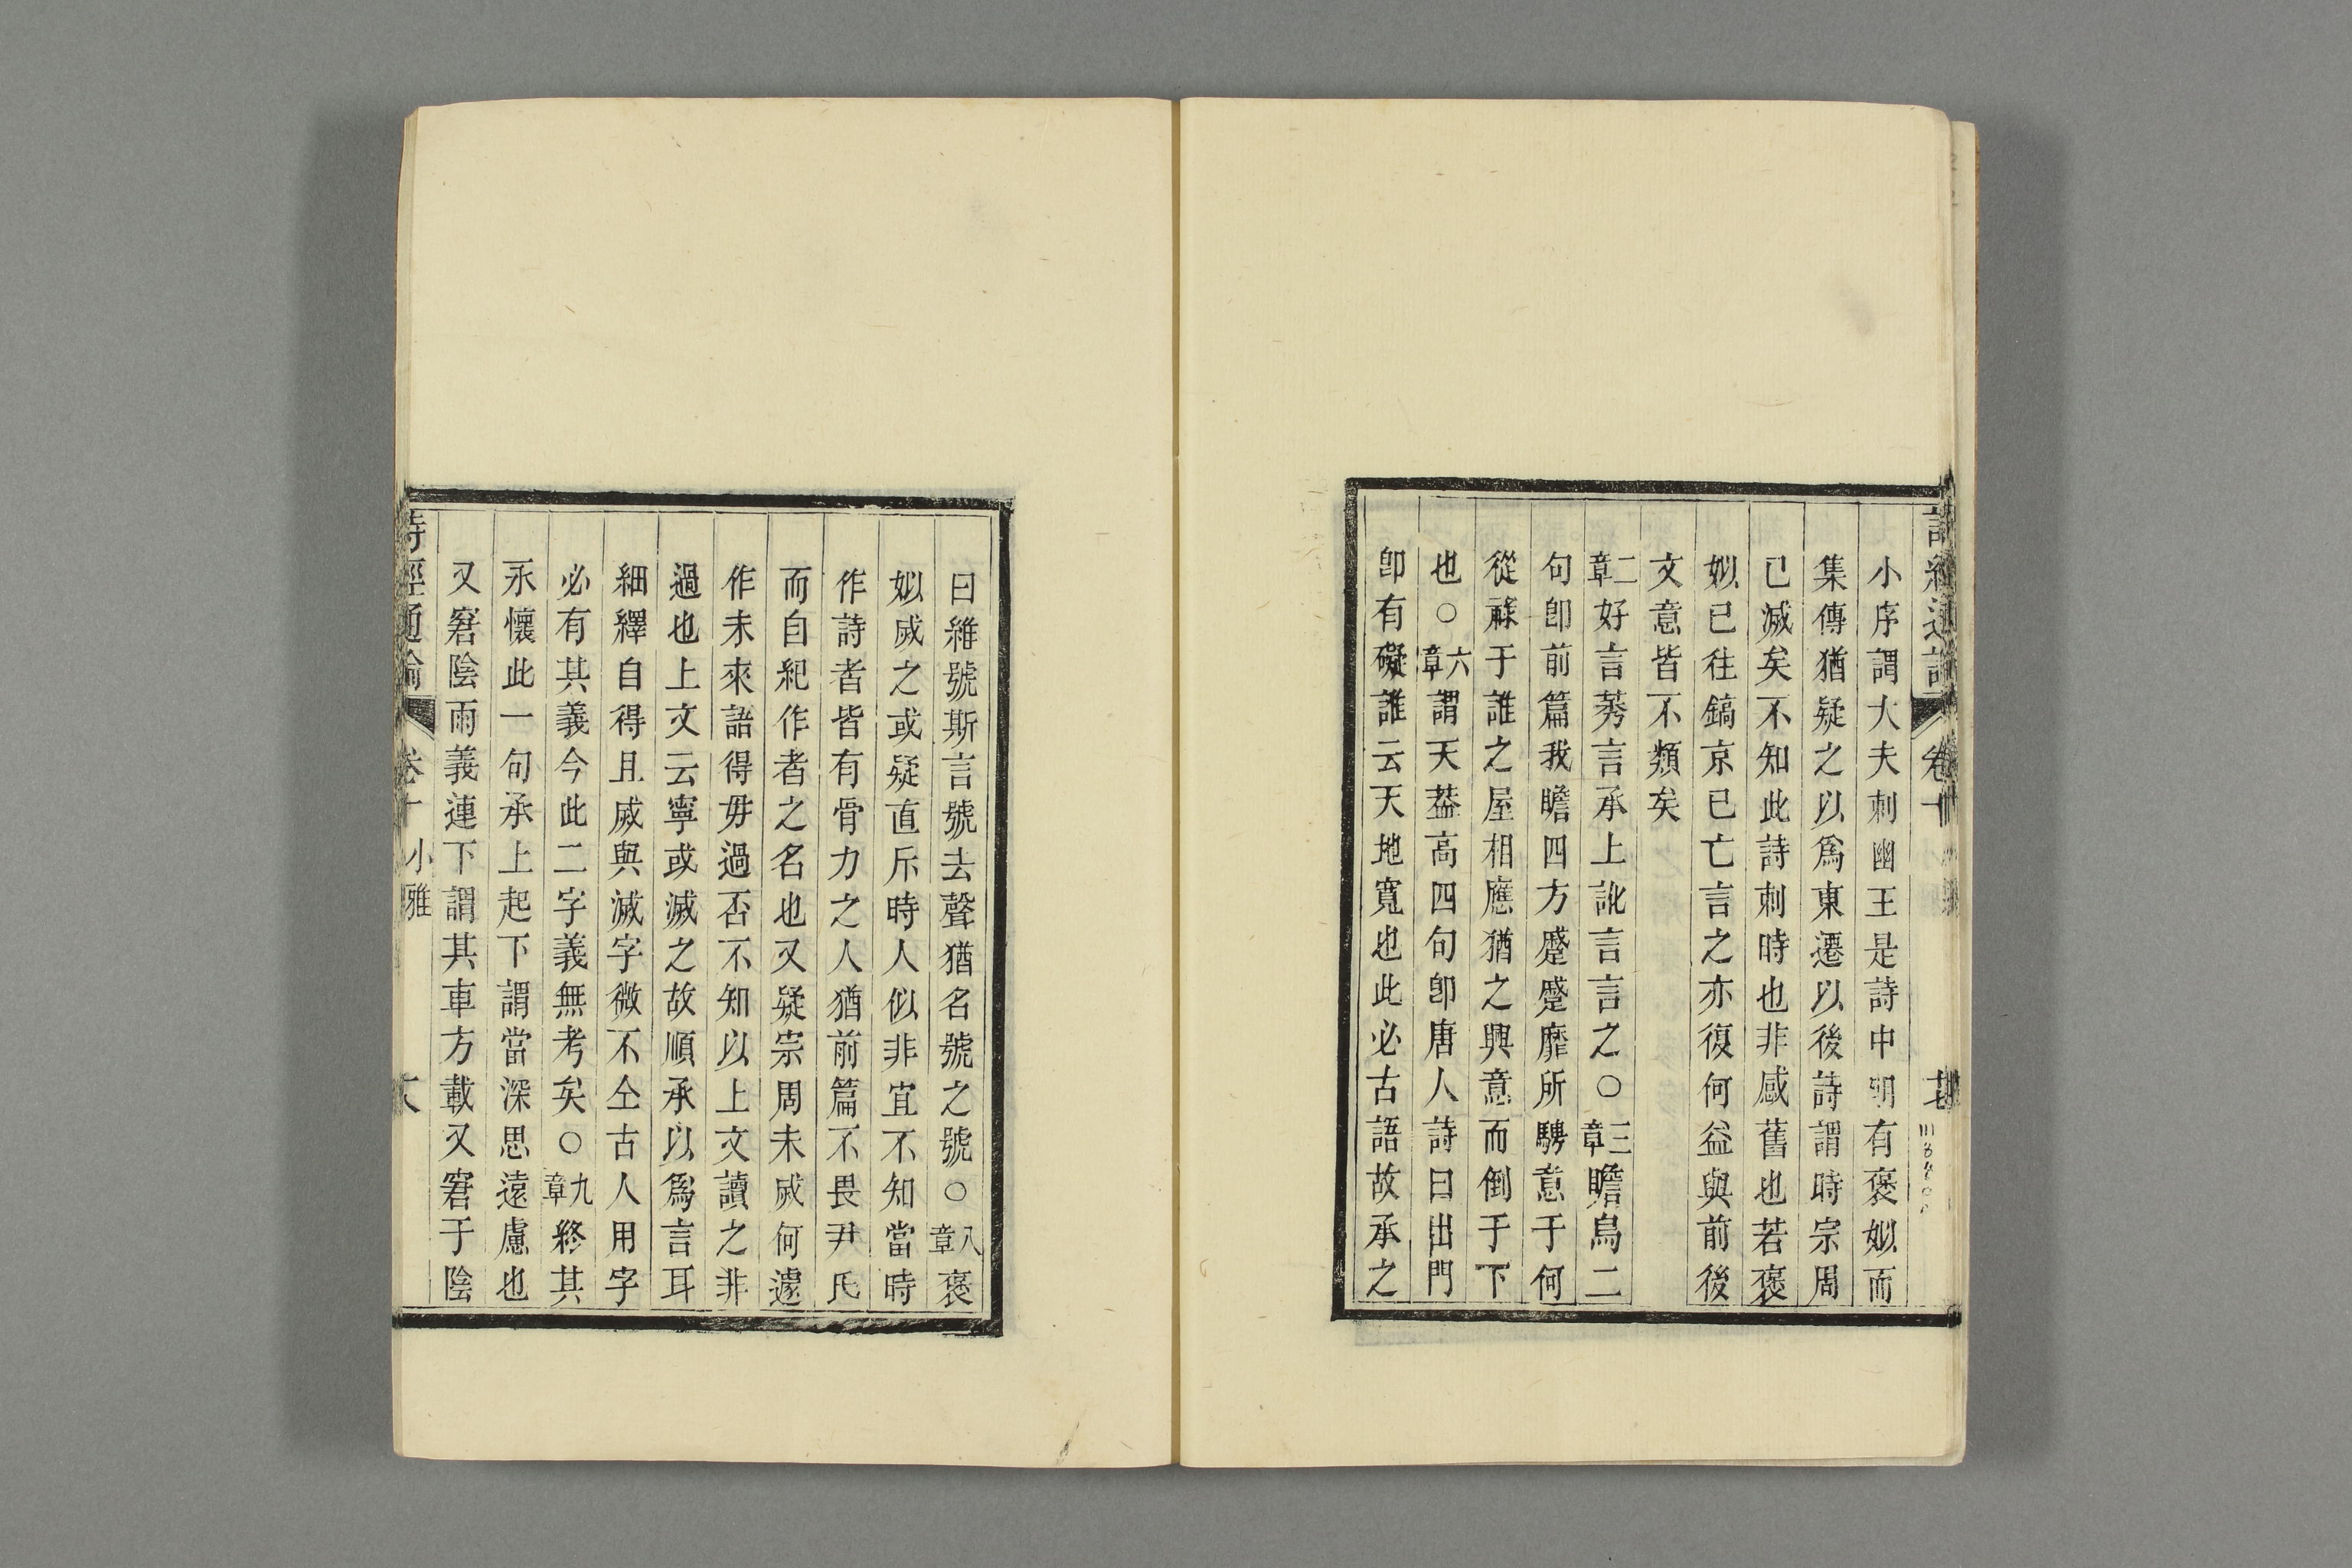 小序謂大夫刺幽王是詩中明有褒姒而
集傳猶疑之以爲東遷以後詩謂時宗周
已滅矣不知此詩刺時也非感舊也若褒
姒已往鎬京已亡言之亦復何益與前後
文意皆不類矣
二章好言莠言承上訛言言之○三章瞻烏二
句卽前篇我瞻四方蹙蹙靡所騁意于何
從祿于誰之屋相應猶之興意而倒于下
也○六章謂天葢高四句卽唐人詩曰出門
卽有礙誰云天地寬也此必古語故承之
曰維號斯言號去聲猶名號之號○八章褒
姒烕之或疑直斥時人似非宜不知當時
作詩者皆有骨力之人猶前篇不畏尹氏
而自紀作者之名也又疑宗周未烕何遽
作未來語得毋過否不知以上文讀之非
過也上文云寧或滅之故順承以爲言耳
細繹自得且烕與滅字微不仝古人用字
必有其義今此二字義無考矣○九章終其
永懷此一句承上起下謂當深思遠慮也
又窘陰雨義連下謂其車方載又窘于陰
詩經通論 卷十 小雅